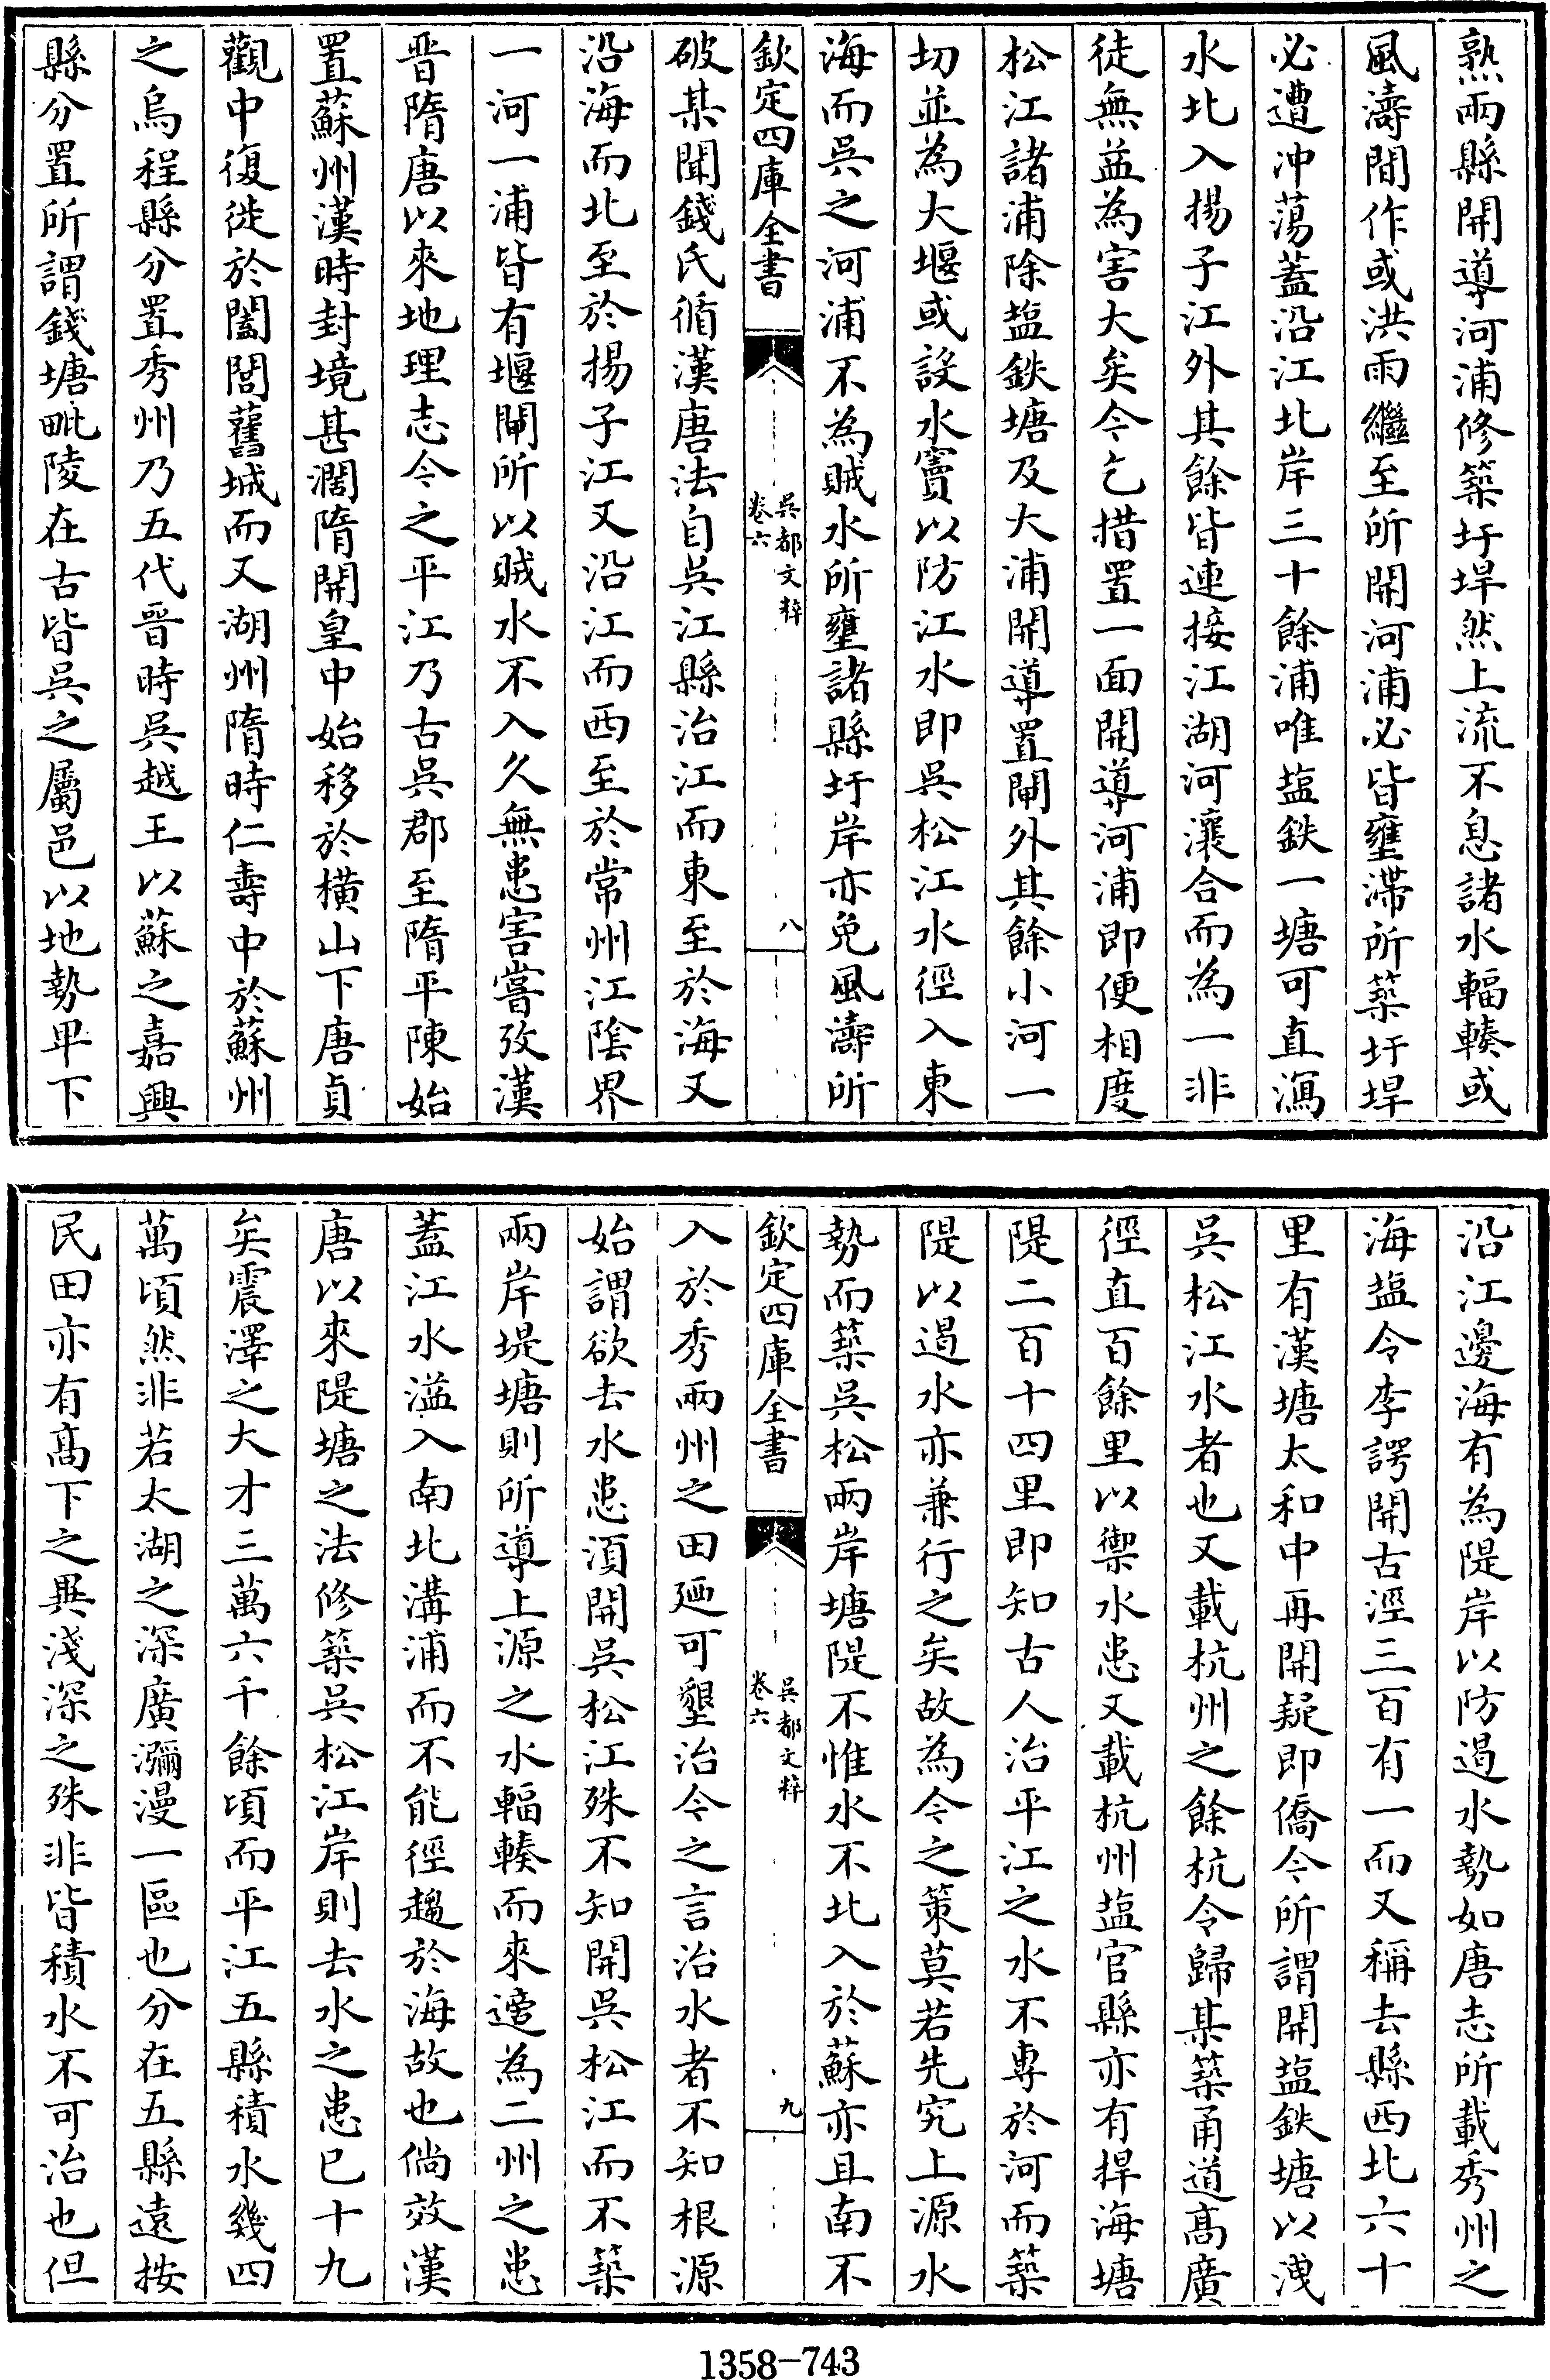 熟兩縣開導河浦修築圩垾然上流不息諸水輻輳或
風濤間作或洪雨繼至所開河浦必皆壅滯所築圩垾
必遭沖蕩蓋沿江北岸三十餘浦唯塩鉄一塘可直瀉
水北入揚子江外其餘皆連接江湖河瀼合而為一非
徒無益為害大矣今乞措置一面開導河浦即便相度
松江諸浦除塩鉄塘及大浦開導置閘外其餘小河一
切並為大堰或設水竇以防江水即吳松江水徑入東
海而吳之河浦不為賊水所壅諸縣圩岸亦免風濤所
欽定四庫全書
吳都文粹
卷六
八
破某聞錢氏循漢唐法自吳江縣治江而東至於海又
沿海而北至於揚子江又沿江而西至於常州江陰界
一河一浦皆有堰閘所以賊水不入久無患害嘗攷漢
晋隋唐以來地理志今之平江乃古吳郡至隋平陳始
置蘇州漢時封境甚濶隋開皇中始移於橫山下唐貞
觀中復徙於闔閭舊城而又湖州隋時仁壽中於蘇州
之烏程縣分置秀州乃五代晉時吳越王以蘇之嘉興
縣分置所謂錢塘毗陵在古皆吳之屬邑以地勢卑下
沿江邊海有為隄岸以防遏水勢如唐志所載秀州之
海塩令李諤開古涇三百有一而又稱去縣西北六十
里有漢塘太和中再開疑即僑令所謂開塩鉄塘以洩
吳松江水者也又載杭州之餘杭令歸某築甬道髙廣
徑直百餘里以禦水患又載杭州塩官縣亦有捍海塘
隄二百十四里即知古人治平江之水不專於河而築
隄以遏水亦兼行之矣故為今之策莫若先究上源水
勢而築吳松兩岸塘隄不惟水不北入於蘇亦且南不
欽定四庫全書
吳都文粹
卷六
九
入於秀兩州之田廼可墾治今之言治水者不知根源
始謂欲去水患須開吳松江殊不知開吳松江而不築
兩岸堤塘則所導上源之水輻輳而來適為二州之患
蓋江水溢入南北溝浦而不能徑趨於海故也倘效漢
唐以來隄塘之法修築吳松江岸則去水之患已十九
矣震澤之大才三萬六千餘頃而平江五縣積水幾四
萬頃然非若太湖之深廣瀰漫一區也分在五縣遠按
民田亦有髙下之異淺深之殊非皆積水不可治也但
1358-743